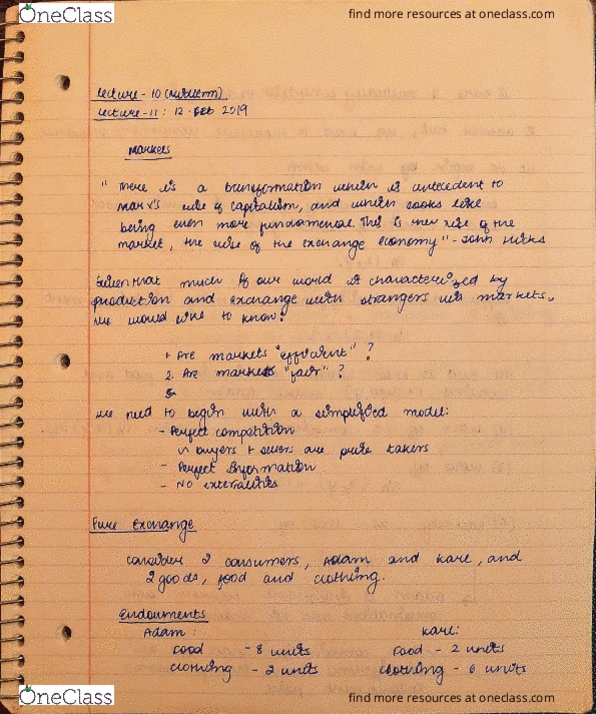 OneClass
find more resources at oneclass.com
Lecture - 10 (midterm)
Lecture - 11 : 12 Feb 2019
Markets
"There is a transformation which is antecedent to
Marx's rise of capitalism, and which looks like
being even more fundamental. This is the rise of the
market, the rise of the exchange economy" - John Hicks
Given that much of our world is characterized by
production and exchange with strangers via markets,
we would like to know:
1. Are markets "efficient" ?
2. Are markets "fair" ?
We need to begin with a simplified model:
- Perfect competition
buyers + sellers are price takers
- Perfect Information
- No externalities
Pure Exchange
Consider 2 consumers, Adam and Karl, and
2 goods, food and clothing.
Endowments
Adam : Karl:
Food - 8 units Food - 2 units
Clothing - 2 units Clothing - 6 units
OneClass
find more resources at oneclass.com